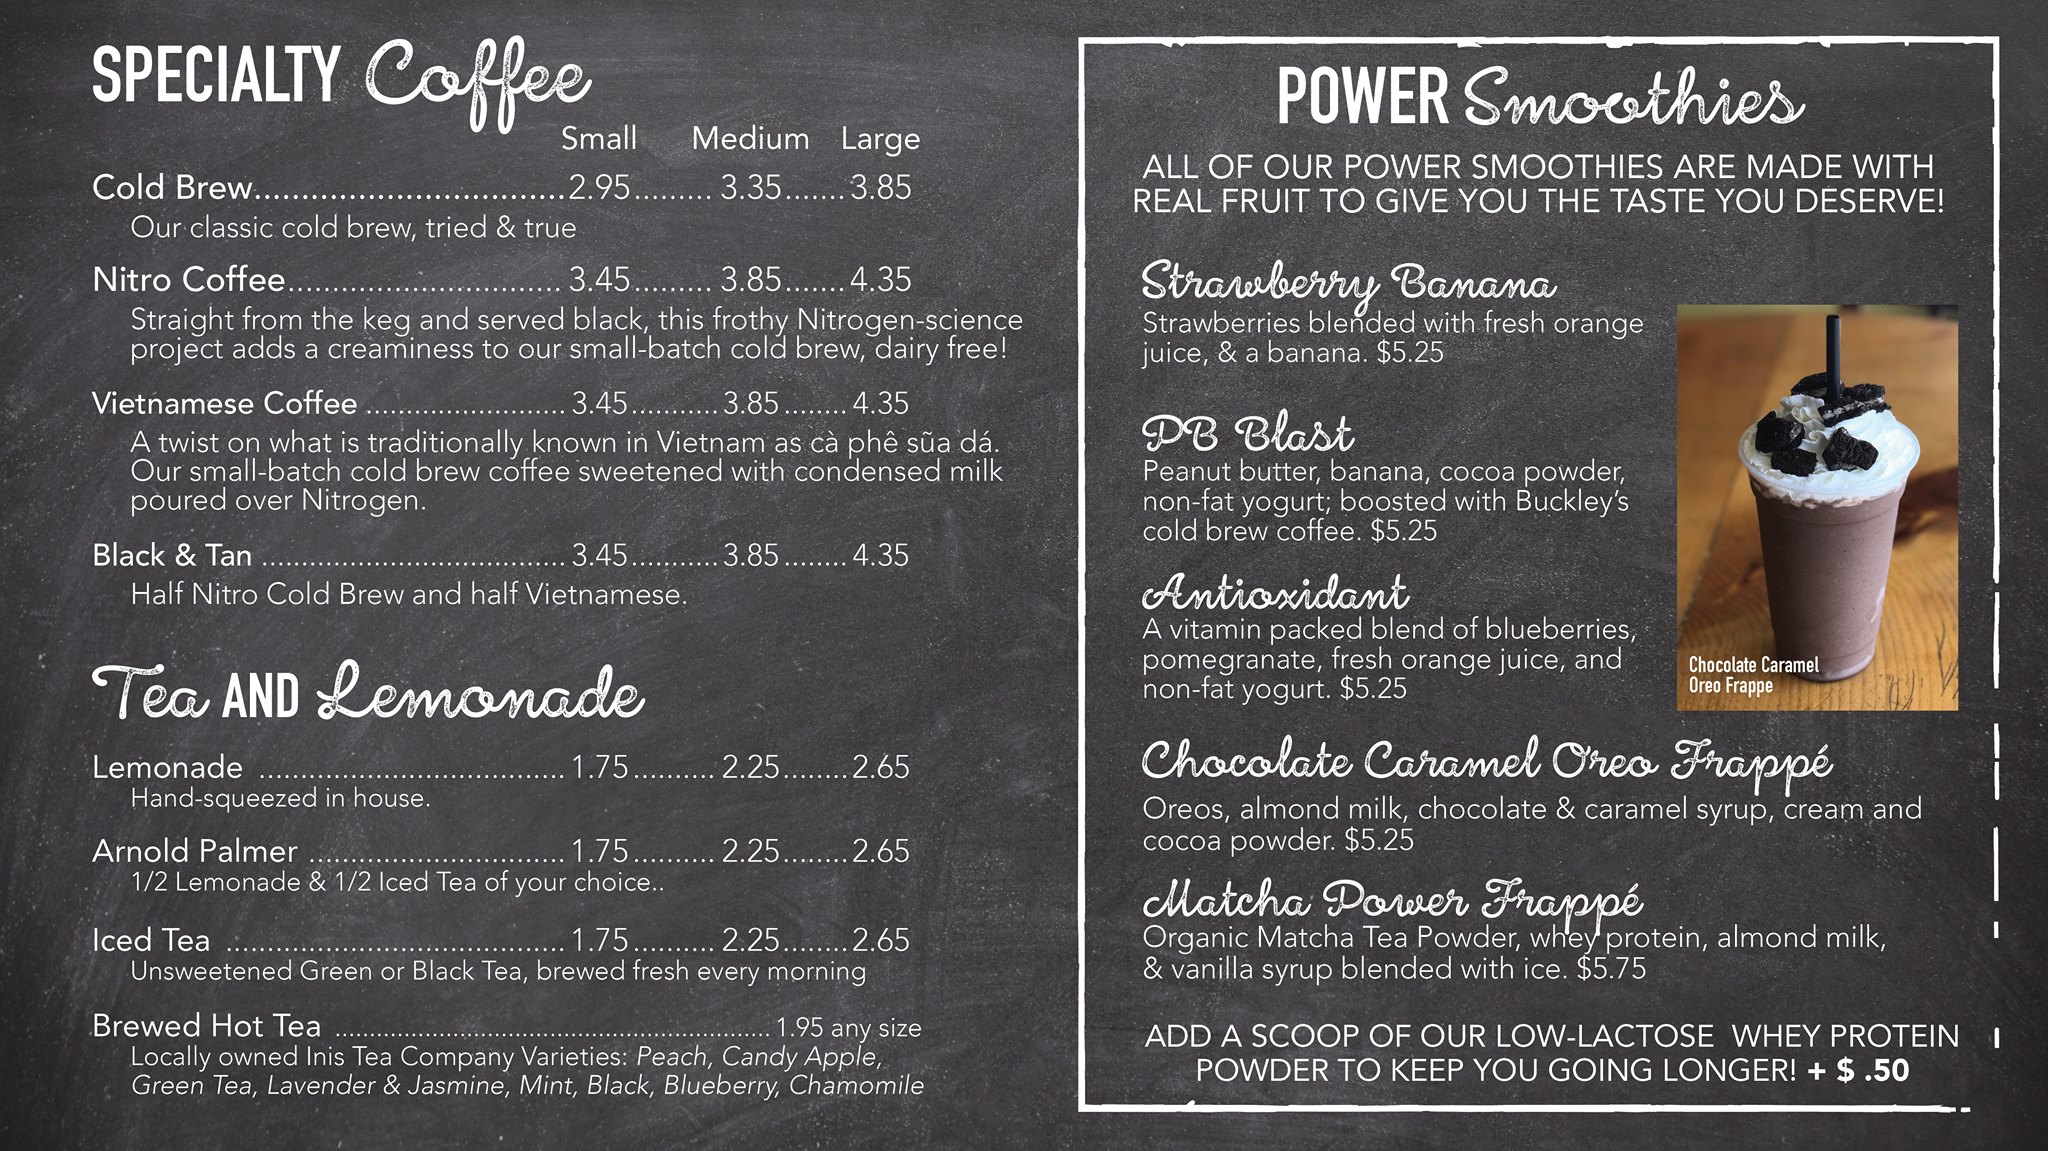 SPECIALTY Coffee
Small Medium Large
Cold Brew...............................2.95......... 3.35.......3.85
Our classic cold brew, tried & true
Nitro Coffee............................ 3.45......... 3.85.......4.35
Straight from the keg and served black, this frothy Nitrogen-science
project adds a creaminess to our small-batch cold brew, dairy free!
Vietnamese Coffee ......................... 3.45........... 3.85........ 4.35
A twist on what is traditionally known in Vietnam as cà phê sũa dá.
Our small-batch cold brew coffee sweetened with condensed milk
poured over Nitrogen.
Black & Tan .................................... 3.45........... 3.85........ 4.35
Half Nitro Cold Brew and half Vietnamese.
Tea AND Lemonade
Lemonade ..................................... 1.75.......... 2.25........2.65
Hand-squeezed in house.
Arnold Palmer ............................... 1.75.......... 2.25........2.65
1/2 Lemonade & 1/2 Iced Tea of your choice..
Iced Tea ......................................... 1.75.......... 2.25........2.65
Unsweetened Green or Black Tea, brewed fresh every morning
Brewed Hot Tea ................................................................ 1.95 any size
Locally owned Inis Tea Company Varieties: Peach, Candy Apple,
Green Tea, Lavender & Jasmine, Mint, Black, Blueberry, Chamomile
POWER Smoothies
ALL OF OUR POWER SMOOTHIES ARE MADE WITH
REAL FRUIT TO GIVE YOU THE TASTE YOU DESERVE!
Strawberry Banana
Strawberries blended with fresh orange
juice, & a banana. $5.25
PB Blast
Peanut butter, banana, cocoa powder,
non-fat yogurt; boosted with Buckley's
cold brew coffee. $5.25
Antioxidant
A vitamin packed blend of blueberries,
pomegranate, fresh orange juice, and
non-fat yogurt. $5.25
Chocolate Caramel
Oreo Frappe
Chocolate Caramel Oreo Frappé
Oreos, almond milk, chocolate & caramel syrup, cream and
cocoa powder. $5.25
Matcha Power Frappé
Organic Matcha Tea Powder, whey protein, almond milk,
& vanilla syrup blended with ice. $5.75
ADD A SCOOP OF OUR LOW-LACTOSE WHEY PROTEIN
POWDER TO KEEP YOU GOING LONGER! + $ .50